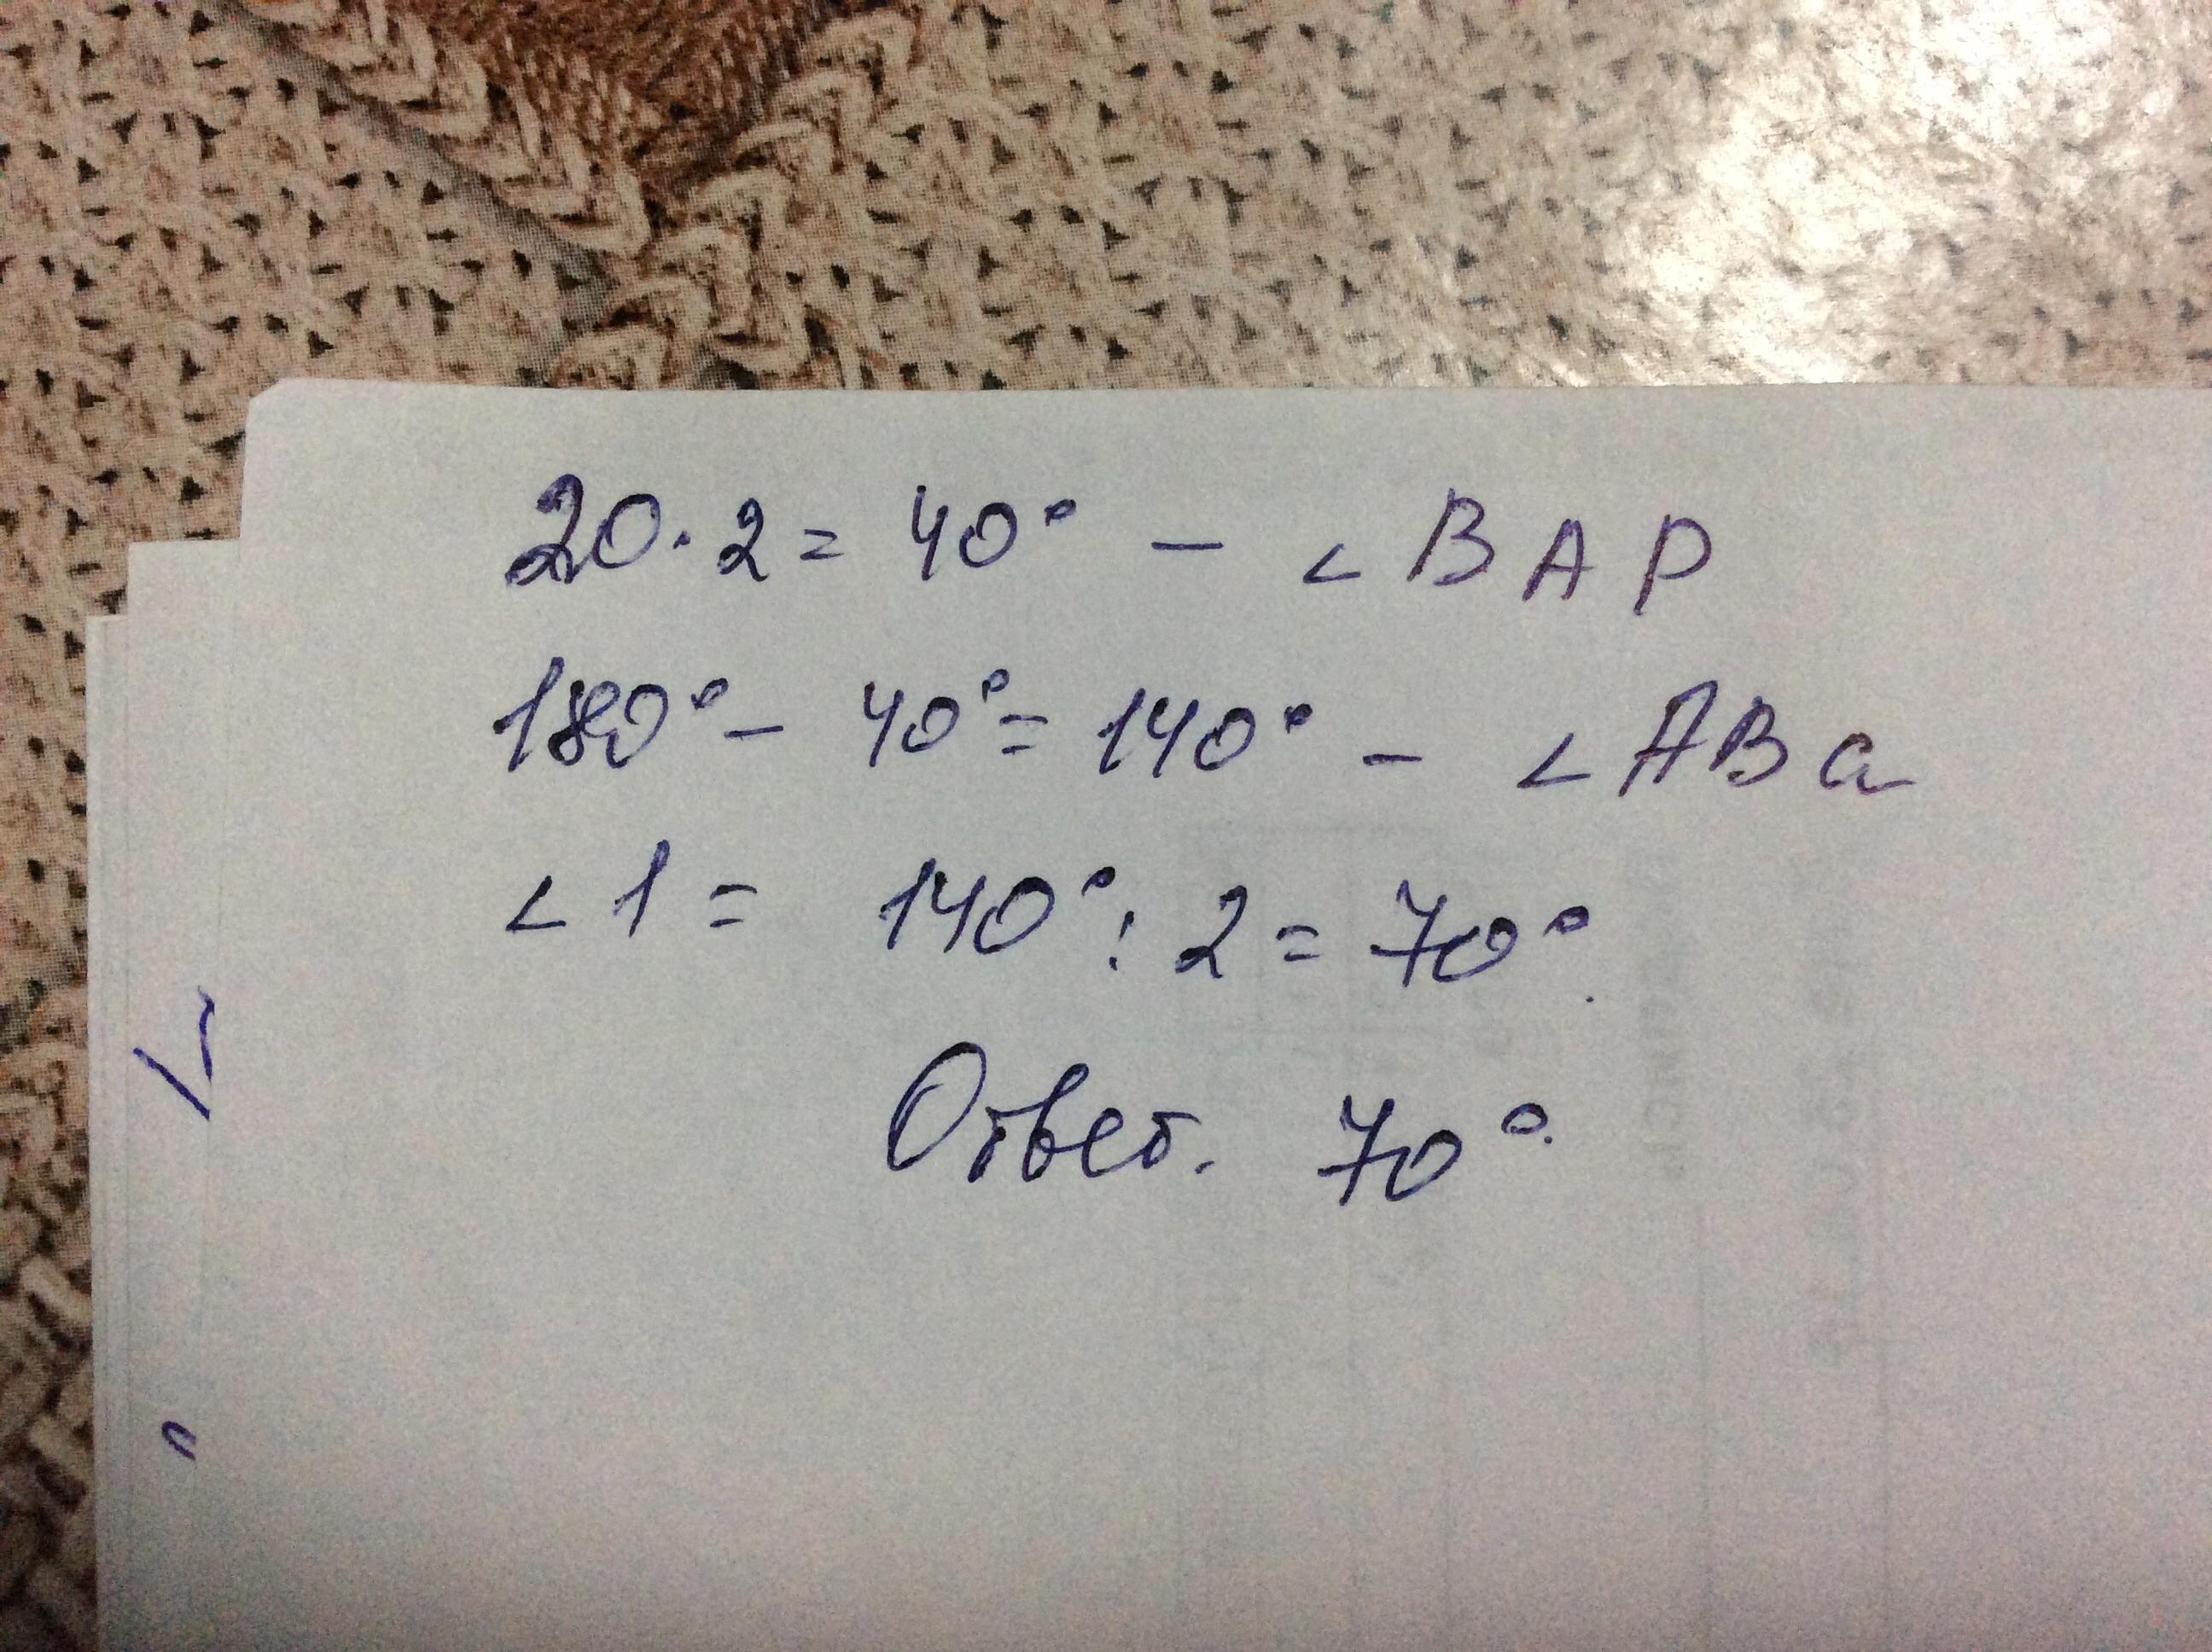 20·2= 40° – ∠BAP
180° – 40°= 140° – ∠ABa
∠1 = 140° : 2 = 70°.
Ответ. 70°.